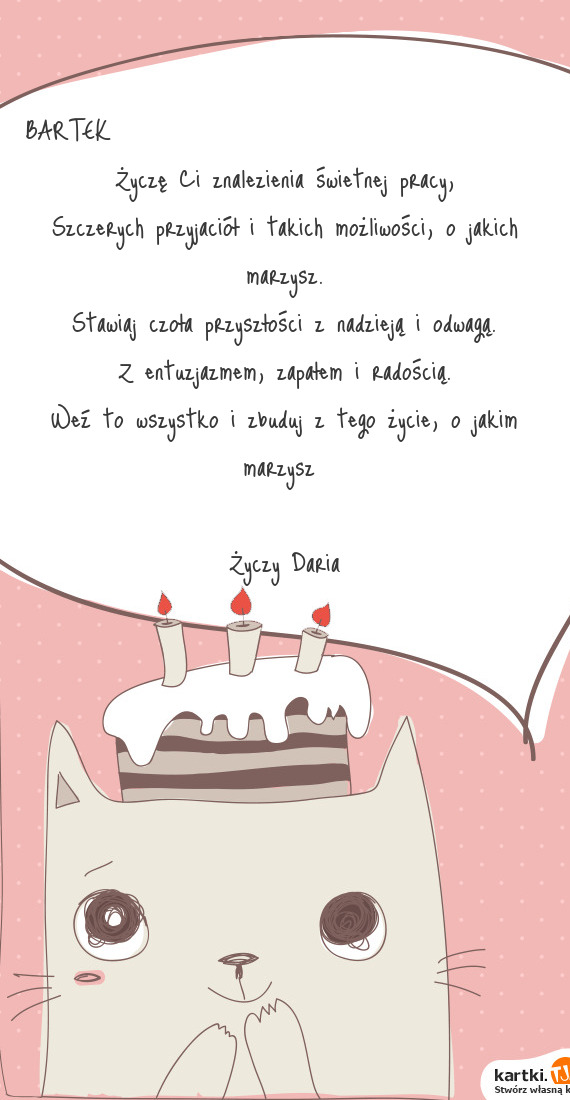 BARTEK
Życzę Ci znalezienia świetnej pracy,
Szczerych przyjaciół i takich możliwości, o jakich
marzysz.
Stawiaj czoła przyszłości z nadzieją i odwagą.
Z entuzjazmem, zapałem i radością.
Weź to wszystko i zbuduj z tego życie, o jakim
marzysz
Życzy Daria
kartki.TJ
Stwórz własną k